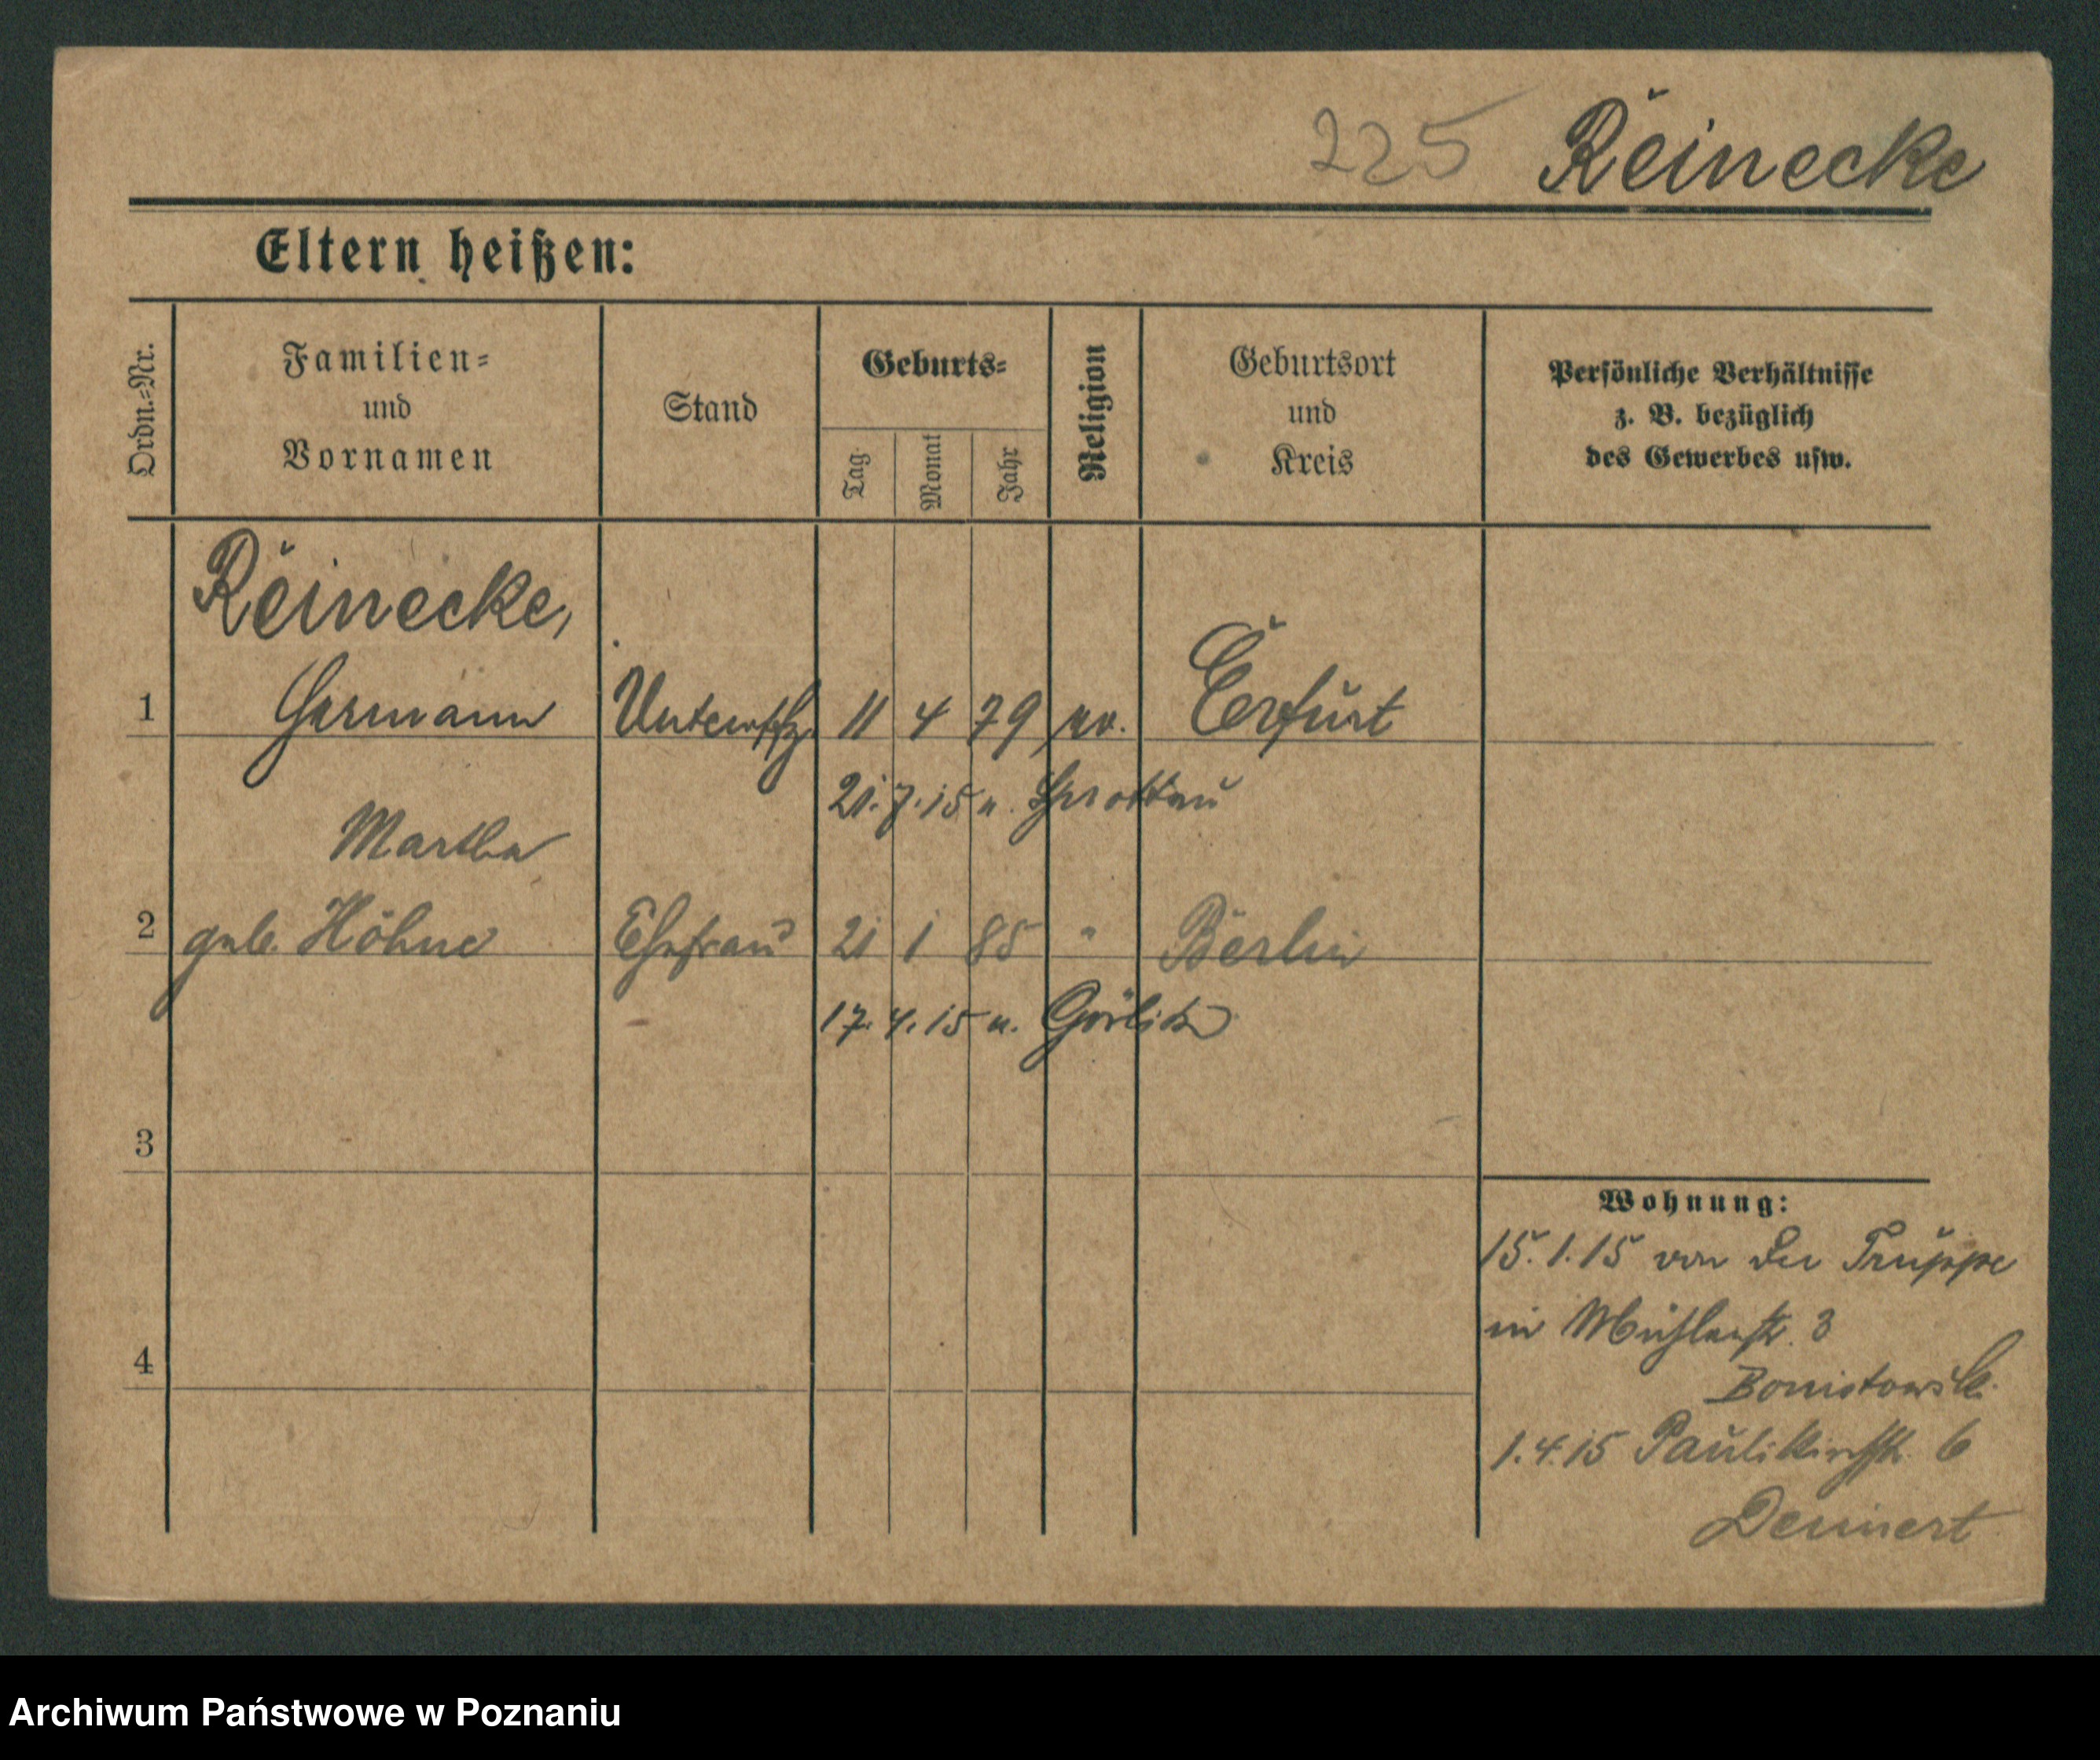 225 Reinecke
Eltern heißen:
Ordn.-Nr.
Familien-
und
Vornamen
Stand
Geburts-
Tag
Monat
Jahr
Religion
Geburtsort
und
Kreis
Persönliche Verhältnisse
z. B. bezüglich
des Gewerbes usw.
Reinecke,
1 Hermann 11 4 79 ev. Erfurt
21.7.15 n. Sprottau
Martha
2 geb. Höhne Ehefrau 21 1 85 " Berlin
17.4.15 n. Görlitz
3
Wohnung:
15.1.15 von der Truppe
in Mühlenstr. 3
4
1.4.15 Paulikirchstr. 6
Dennert
Archiwum Państwowe w Poznaniu